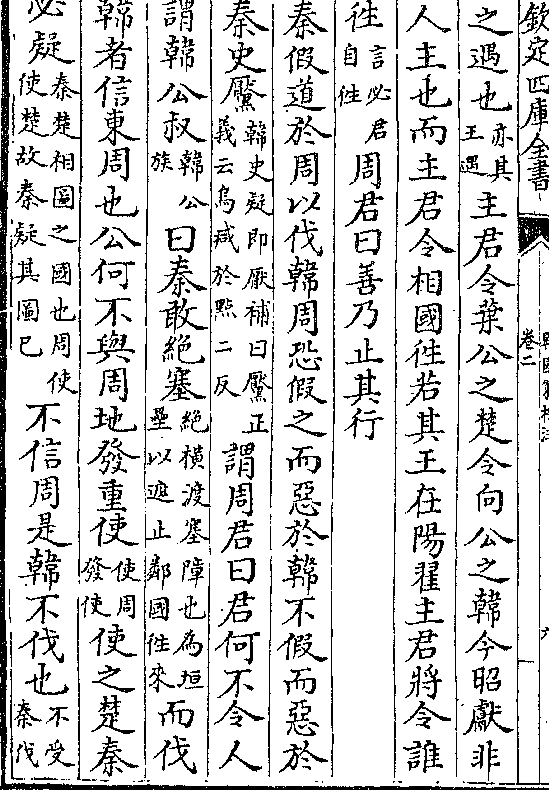 欽定四庫全書
卷二
之遇也亦其王遇主君令葉公之楚令向公之韓今昭獻非
人主也而主君令相國徃若其王在陽翟主君將令誰
徃言必君自徃周君曰善乃止其行
秦假道於周以伐韓周恐假之而惡於韓不假而惡於
秦史黶韓史疑即厥補曰黶正義云烏減於點二反謂周君曰君何不令人
謂韓公叔韓公族曰秦敢絶塞絶橫渡塞障也為垣壘以遮止鄰國徃來而伐
韓者信東周也公何不與周地發重使使周發使使之楚秦
必疑秦楚相圖之國也周使使楚故秦疑其圖已不信周是韓不伐也不受秦伐